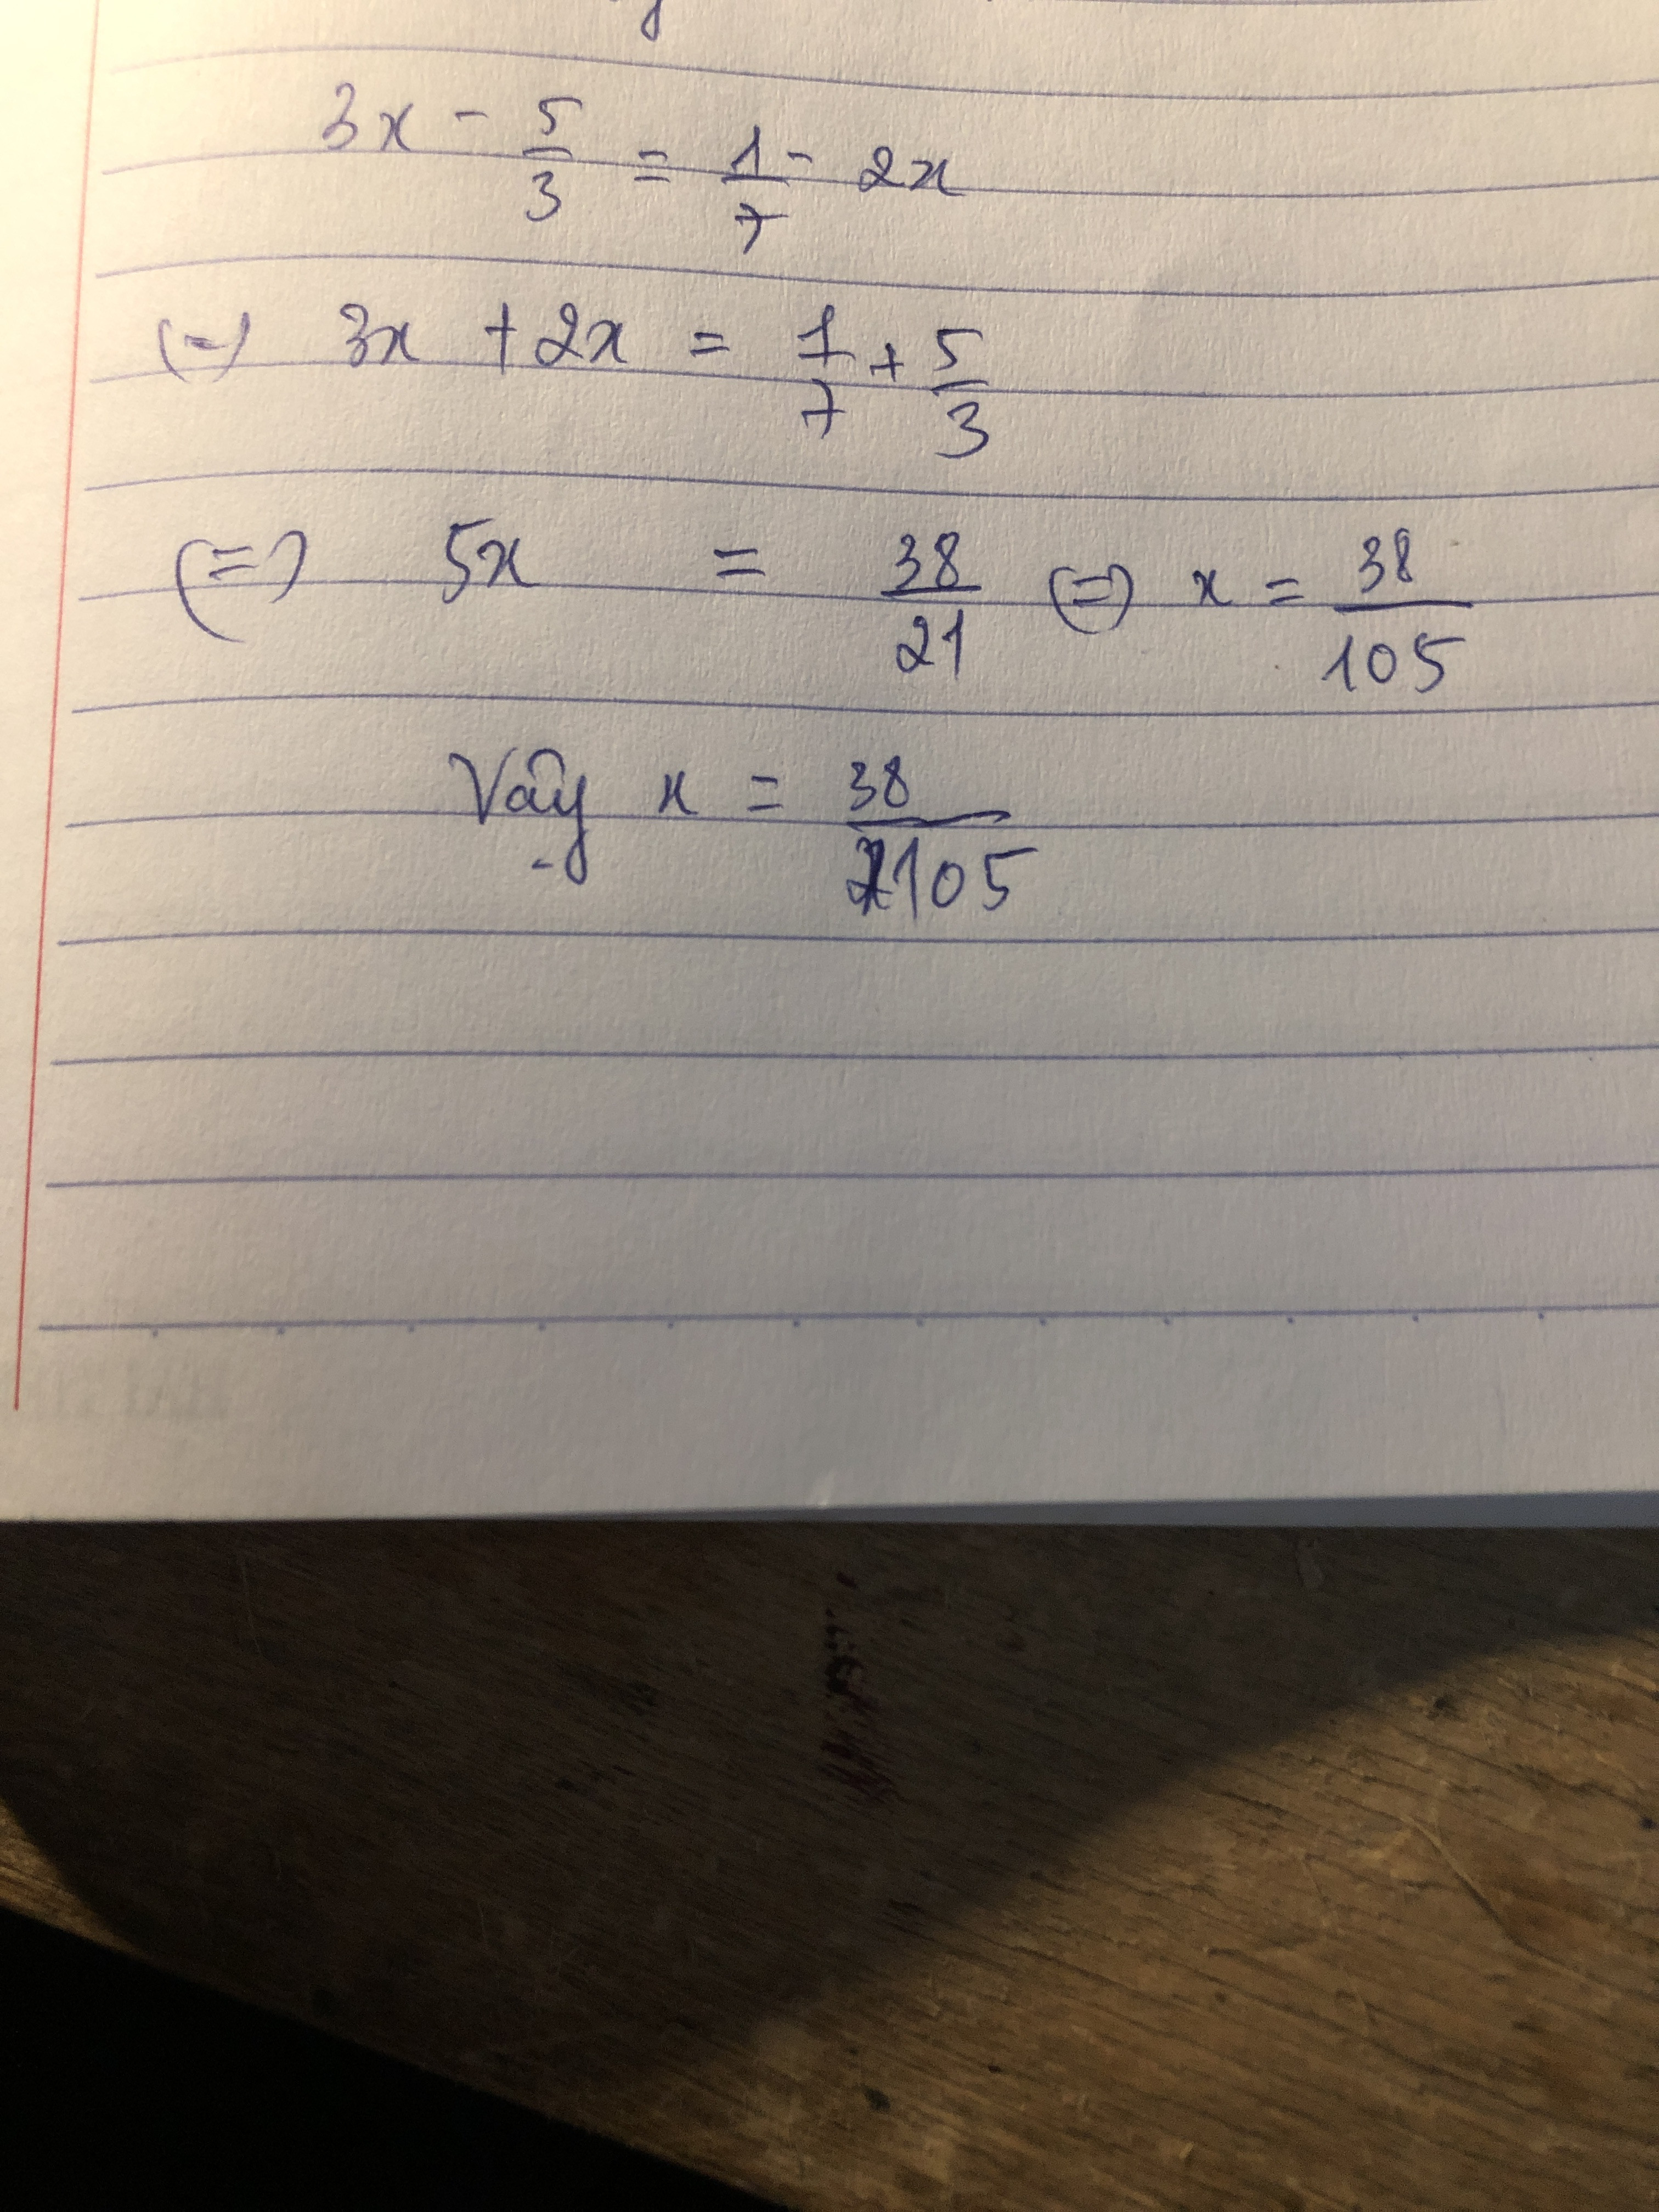 3x - 5/3 = 1/7 - 2x
(=) 3x + 2x = 1/7 + 5/3
(=) 5x = 38/21 (=) x = 38/105
Vậy x = 38/105